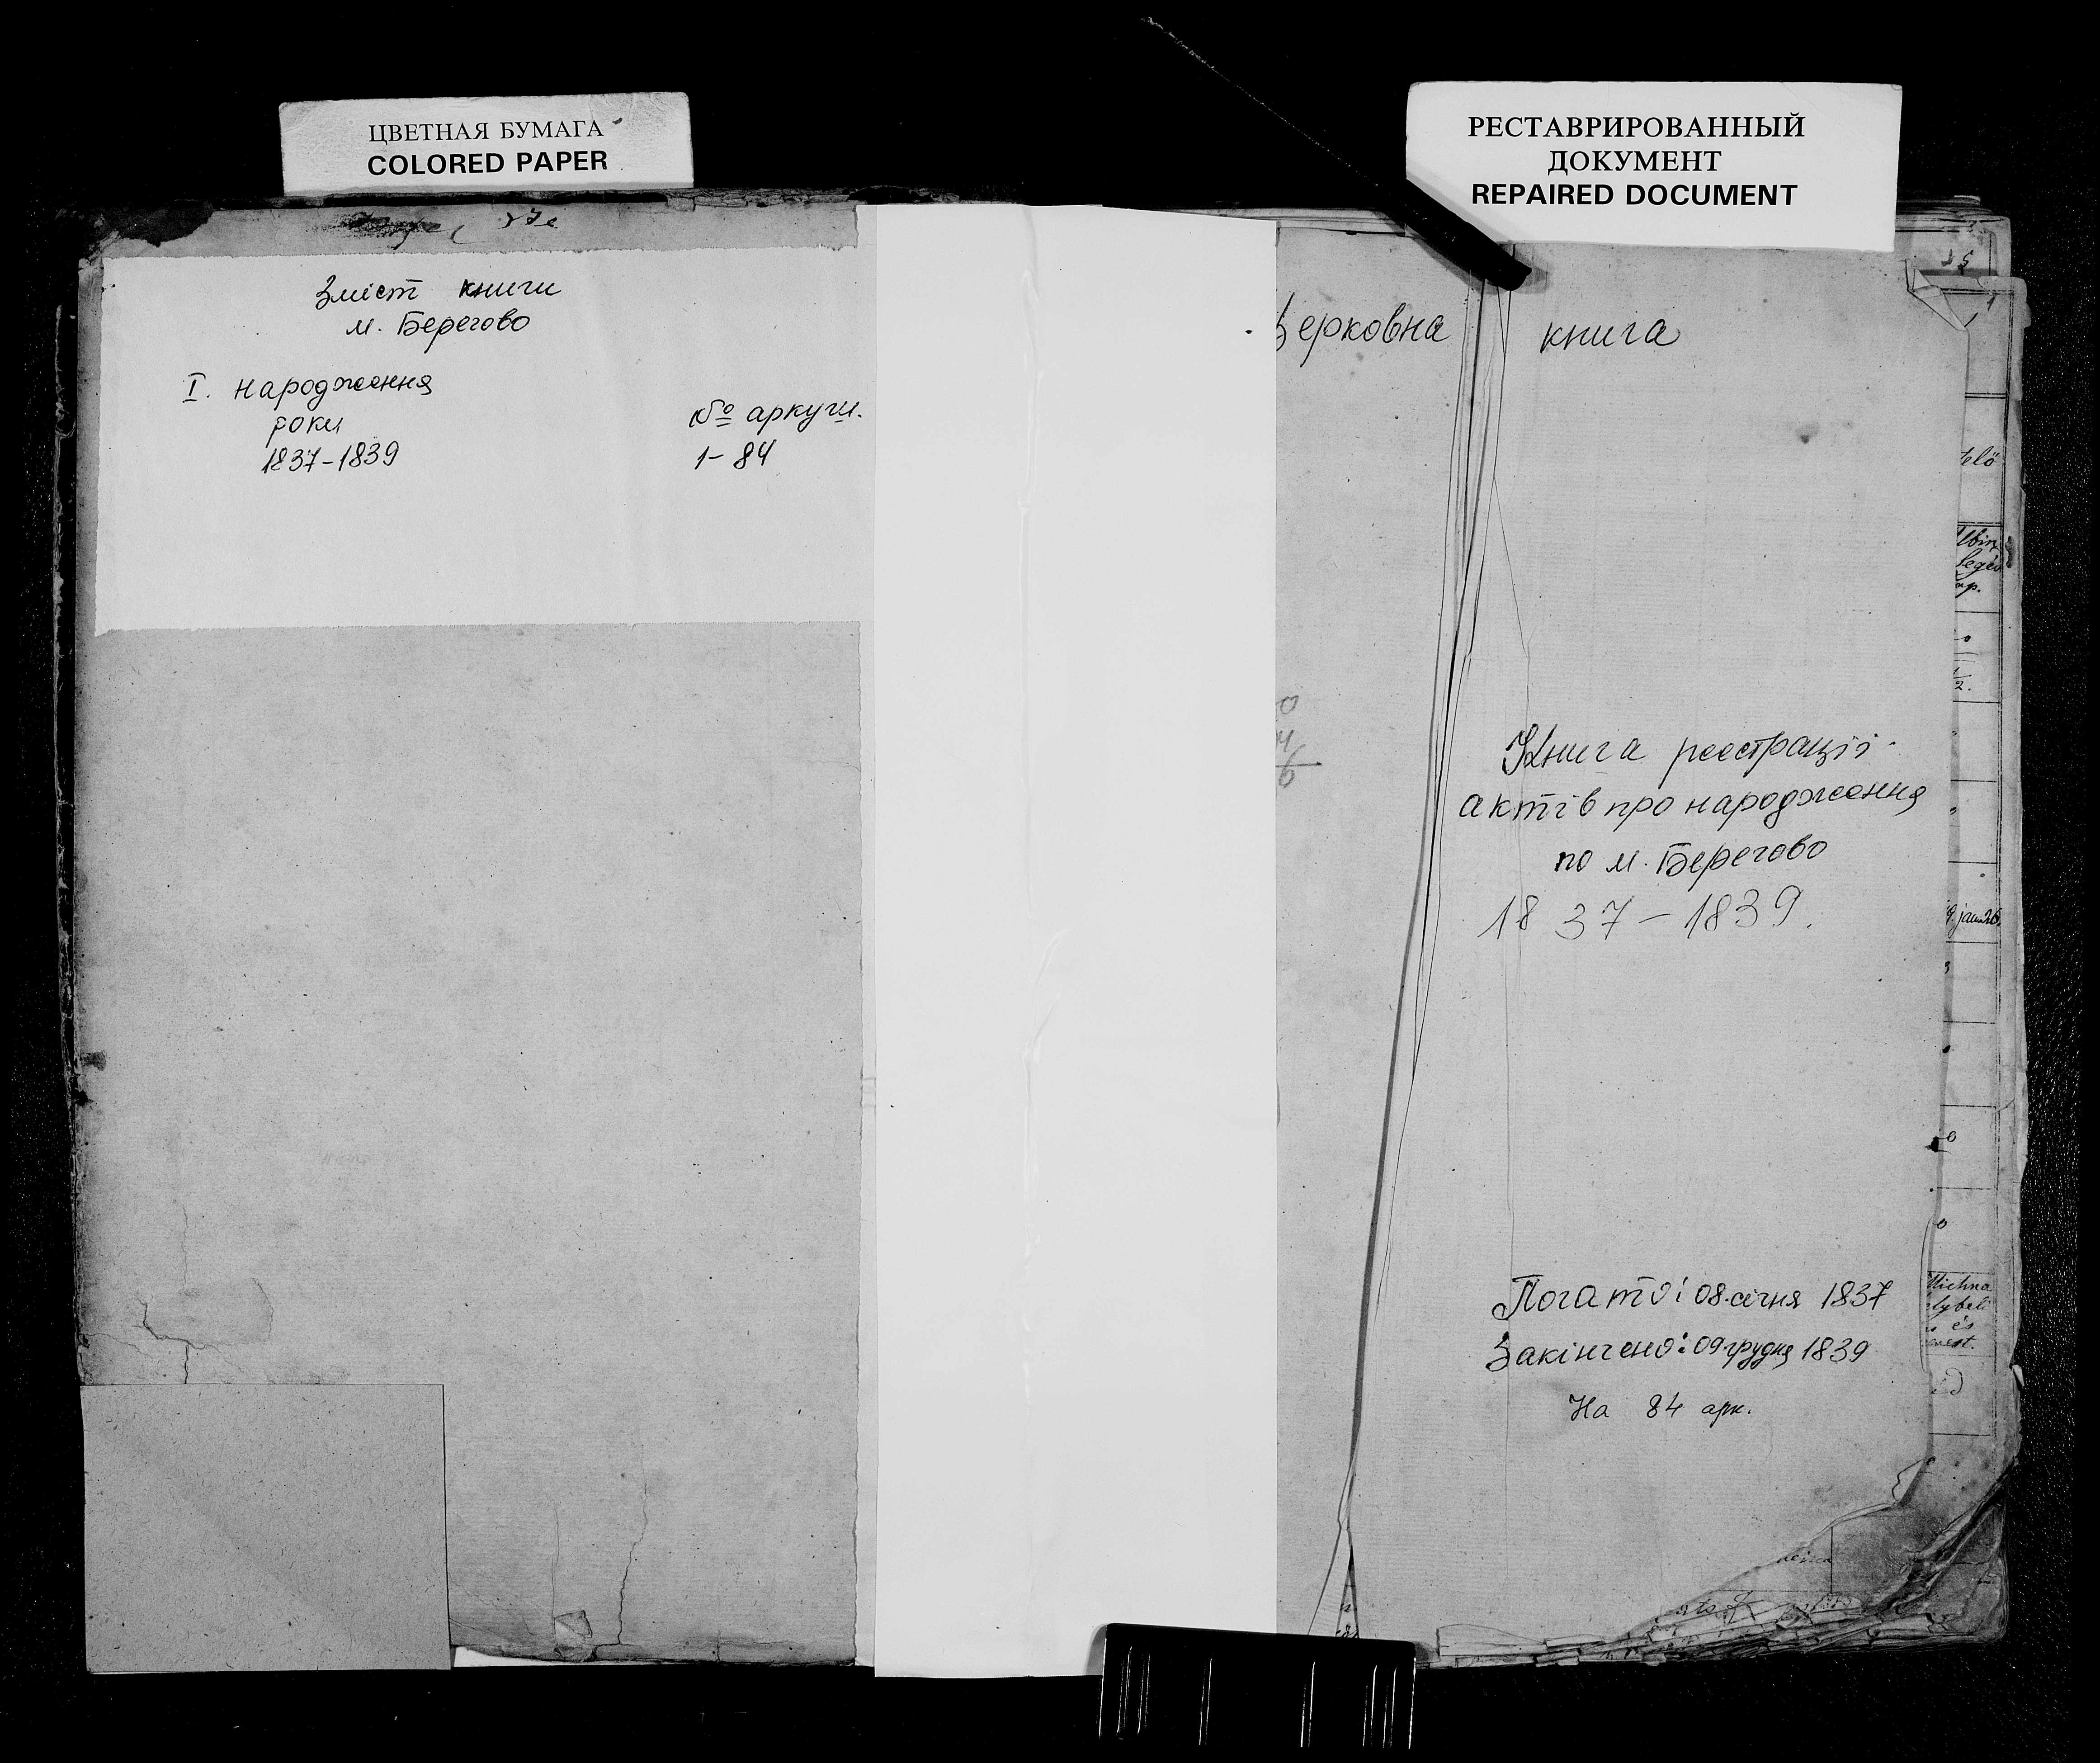 ЦВЕТНАЯ БУМАГА
COLORED PAPER
РЕСТАВРИРОВАННЫЙ
ДОКУМЕНТ
REPAIRED DOCUMENT
Зміст книги
м. Берегово
I. народження
роки
№ аркуш.
1837-1839
1-84
Церковна книга
Книга реєстрації
актів про народження
по м. Берегово
1837-1839.
Почато: 08.січня 1837
Закінчено: 09 грудня 1839
На 84 арк.